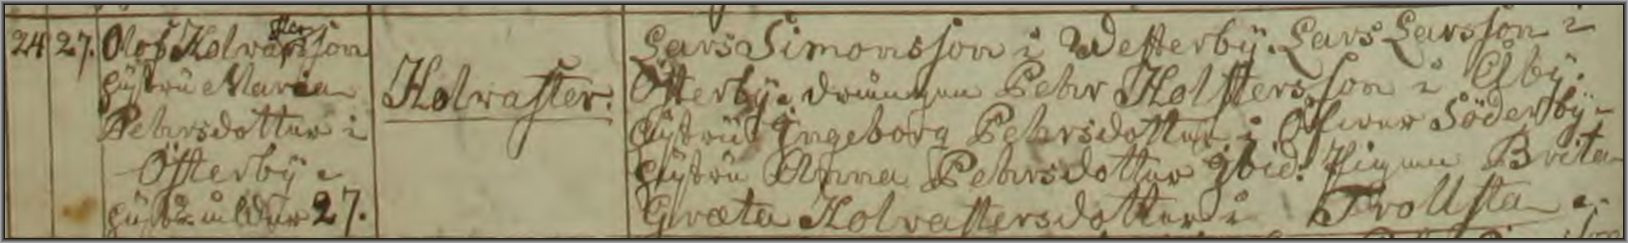 24 27. Olof Holvastersson
hustru Maria
Pehrsdotter i
Österby.
hustruns ålder 27.
Holvaster.
Lars Simonsson i Westerby. Lars Larsson i
Österby. drängen Pehr Holstersson i Åby.
hustru Ingeborg Pehrsdotter i Öfwer Söderby.
hustru Anna Pehrsdotter ibid: Pigan Brita
Greta Holvastersdotter i Trollsta.